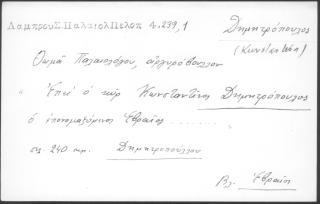 Λάμπρου Σ. Παλαιολ Πελοπ 4.239,1
Δημητρόπουλος
(Κωνσ/
Θωμᾶ Παλαιολόγου, ἀργυρόβουλλον
" Ἐπεὶ ὁ κὺρ Κωνσταντῖνος Δημητρόπουλος
ὁ ἐπονομαζόμενος Ἑβραῖος .......
σελ. 240 Δημητροπούλου
Βλ. Ἑβραῖος